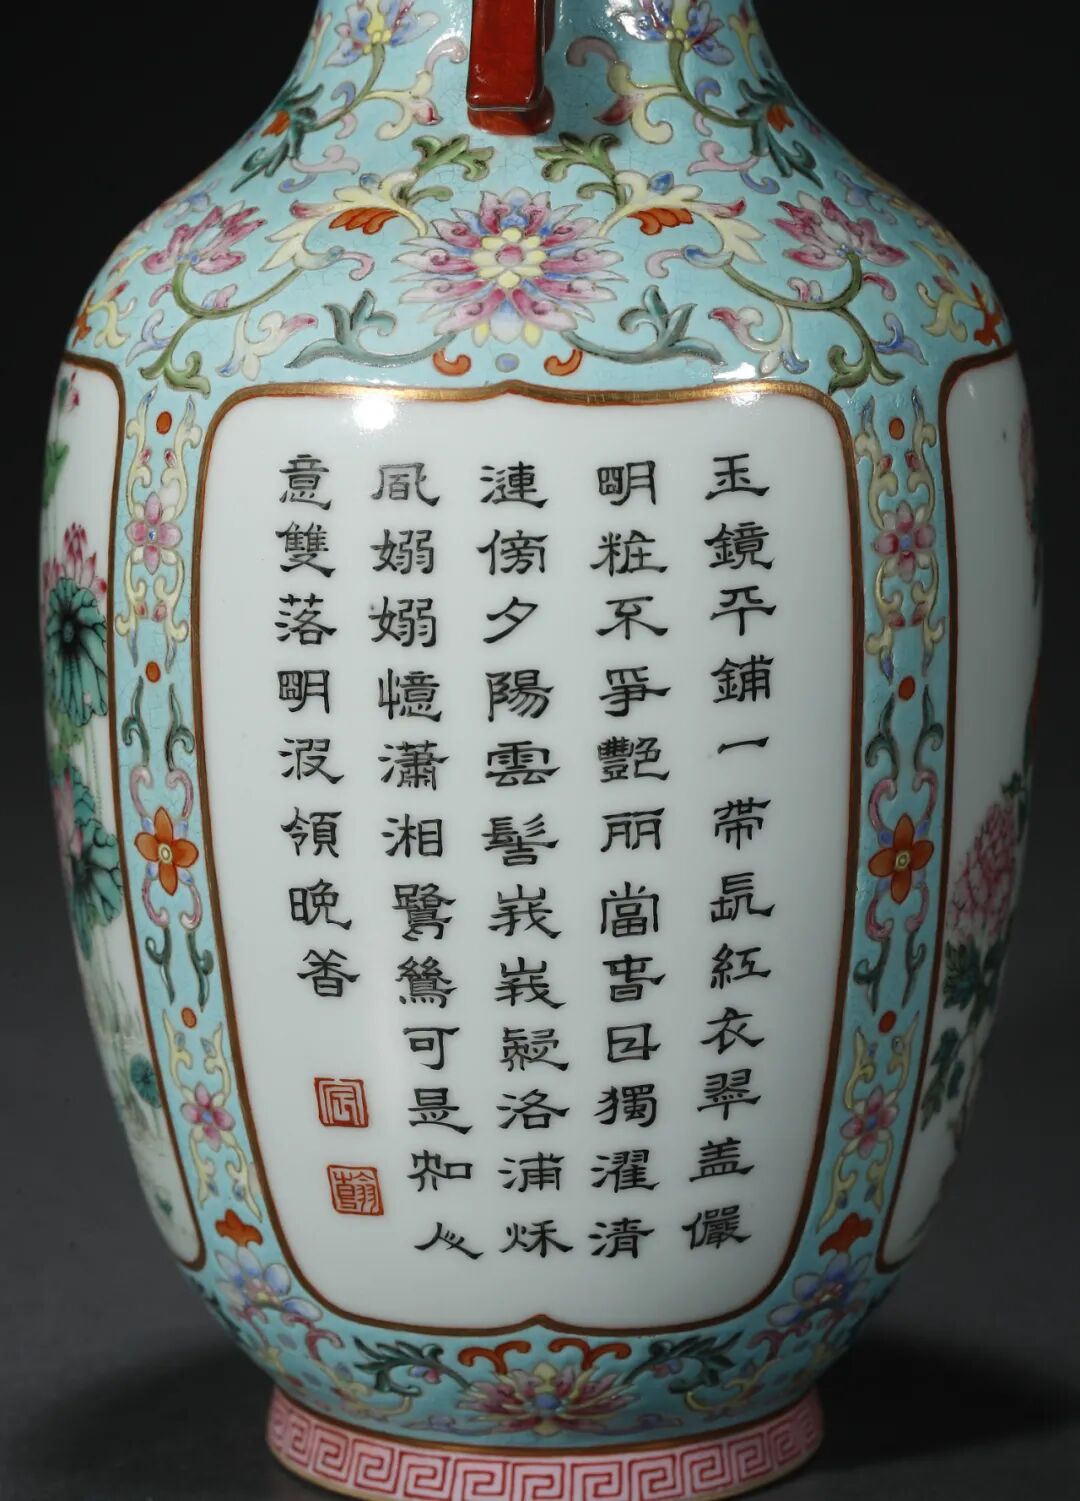 玉鏡平鋪一帶長紅衣翠盖儼
明粧不爭艷丽當春日獨濯清
漣傍夕陽雲髻峩峩疑洛浦秌
風嫋嫋憶瀟湘鷺鶿可是知人
意雙落明波領晚香
宸
翰